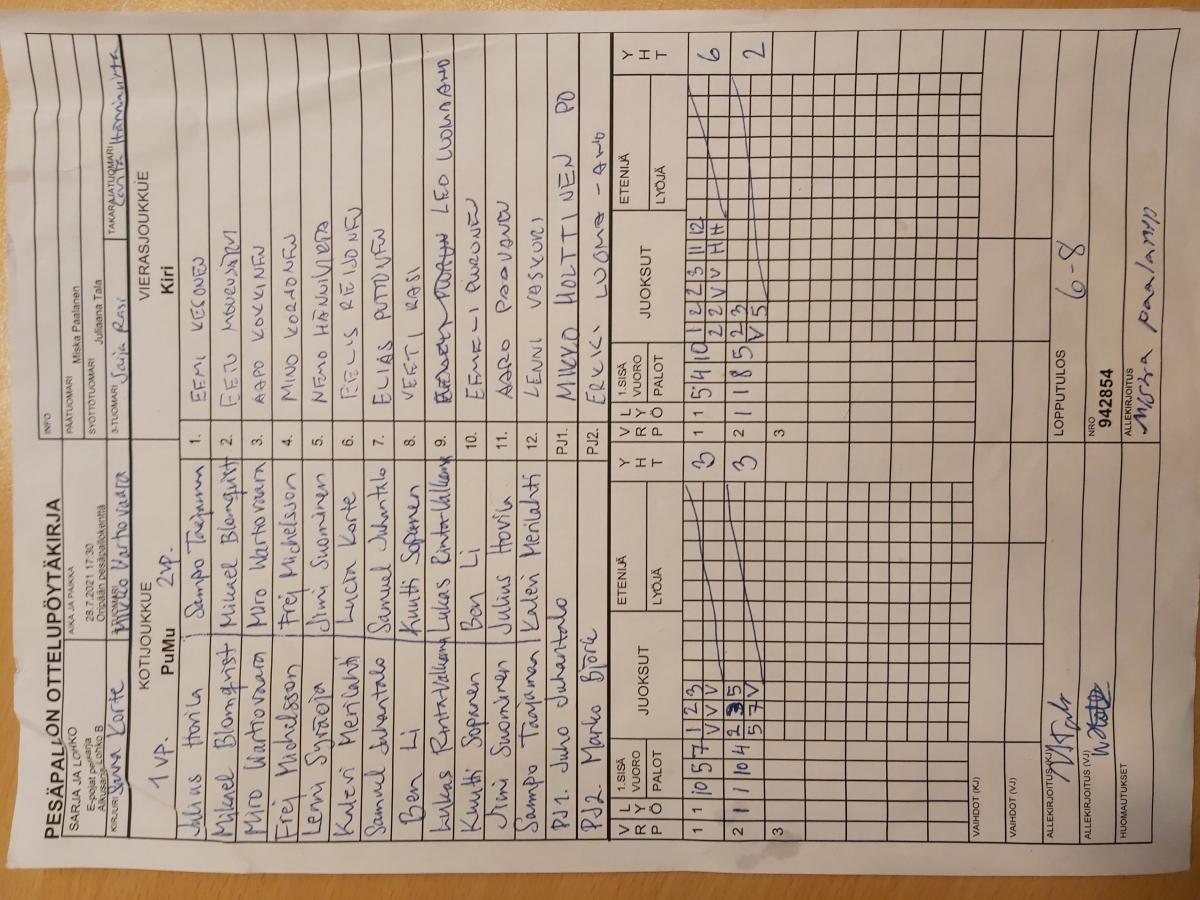 PESÄPALLON OTTELUPÖYTÄKIRJA
INFO
SARJA JA LOHKO
E-pojat perussarja
Alkusarja Lohko B
AIKA JA PAIKKA
28.7.2021 17:30
Oripään pesäpallokenttä
PÄÄTUOMARI Miska Paalanen
SYÖTTÖTUOMARI Juliaana Tala
KIRJURI Korte
2-TUOMARI Mikko Vartiovaara
3-TUOMARI Saija Rasi
TAKARAJATUOMARI
KOTIJOUKKUE
PuMu
1 vp. 2vp.
VIERASJOUKKUE
Kiri
Julius Hovila Sampo Taejaman 1. EEMI KESONEN
Mikael Blomqvist Mikael Blomqvist 2. EETU
Miro Wartiovaara Miro Wartiovaara 3. AAPO KOKKINEN
Frej Michelsson Frej Michelsson 4. MINO KORDONEN
Lenni Syräoja Jimi Suominen 5. NEMO
Kalevi Merilahti Lucia Korte 6. REIJONEN
Samuel Juhantalo Samuel Juhantalo 7. ELIAS PUTTONEN
Ben Li Kuutti Sopanen 8. VEETI RASI
Lukas Rinta-Valkama Lukas Rinta-Valkama 9. LEO LUOMA-AHO
Kuutti Sopanen Ben Li 10. EEMELI PIIRONEN
Jimi Suominen Julius Hovila 11. AARO PAAVANEN
Sampo Taejaman Kalevi Merilahti 12. LENNI VASKURI
PJ1. Juho Juhantalo PJ1. MIKKO HOLTTINEN PO
PJ2. Marko Björk PJ2. ERKKI LUOMA-AHO
VRP LYÖ 1.SISÄ VUORO PALOT JUOKSUT ETENIJÄ LYÖJÄ YHT VRP LYÖ 1.SISÄ VUORO PALOT JUOKSUT ETENIJÄ LYÖJÄ YHT
1 1 10 5 7 1 2 3 3 1 1 5 4 10 1 2 2 3 11 12 6
V V V 2 2 V V H H
2 1 1 10 4 2 3 5 3 2 1 1 8 5 2 3 2
5 7 V V 5
3 3
VAIHDOT (KJ)
VAIHDOT (VJ)
LOPPUTULOS 6-8
ALLEKIRJOITUS (KJ)
ALLEKIRJOITUS (VJ)
NRO
942854
HUOMAUTUKSET
ALLEKIRJOITUS
Miska paalanen